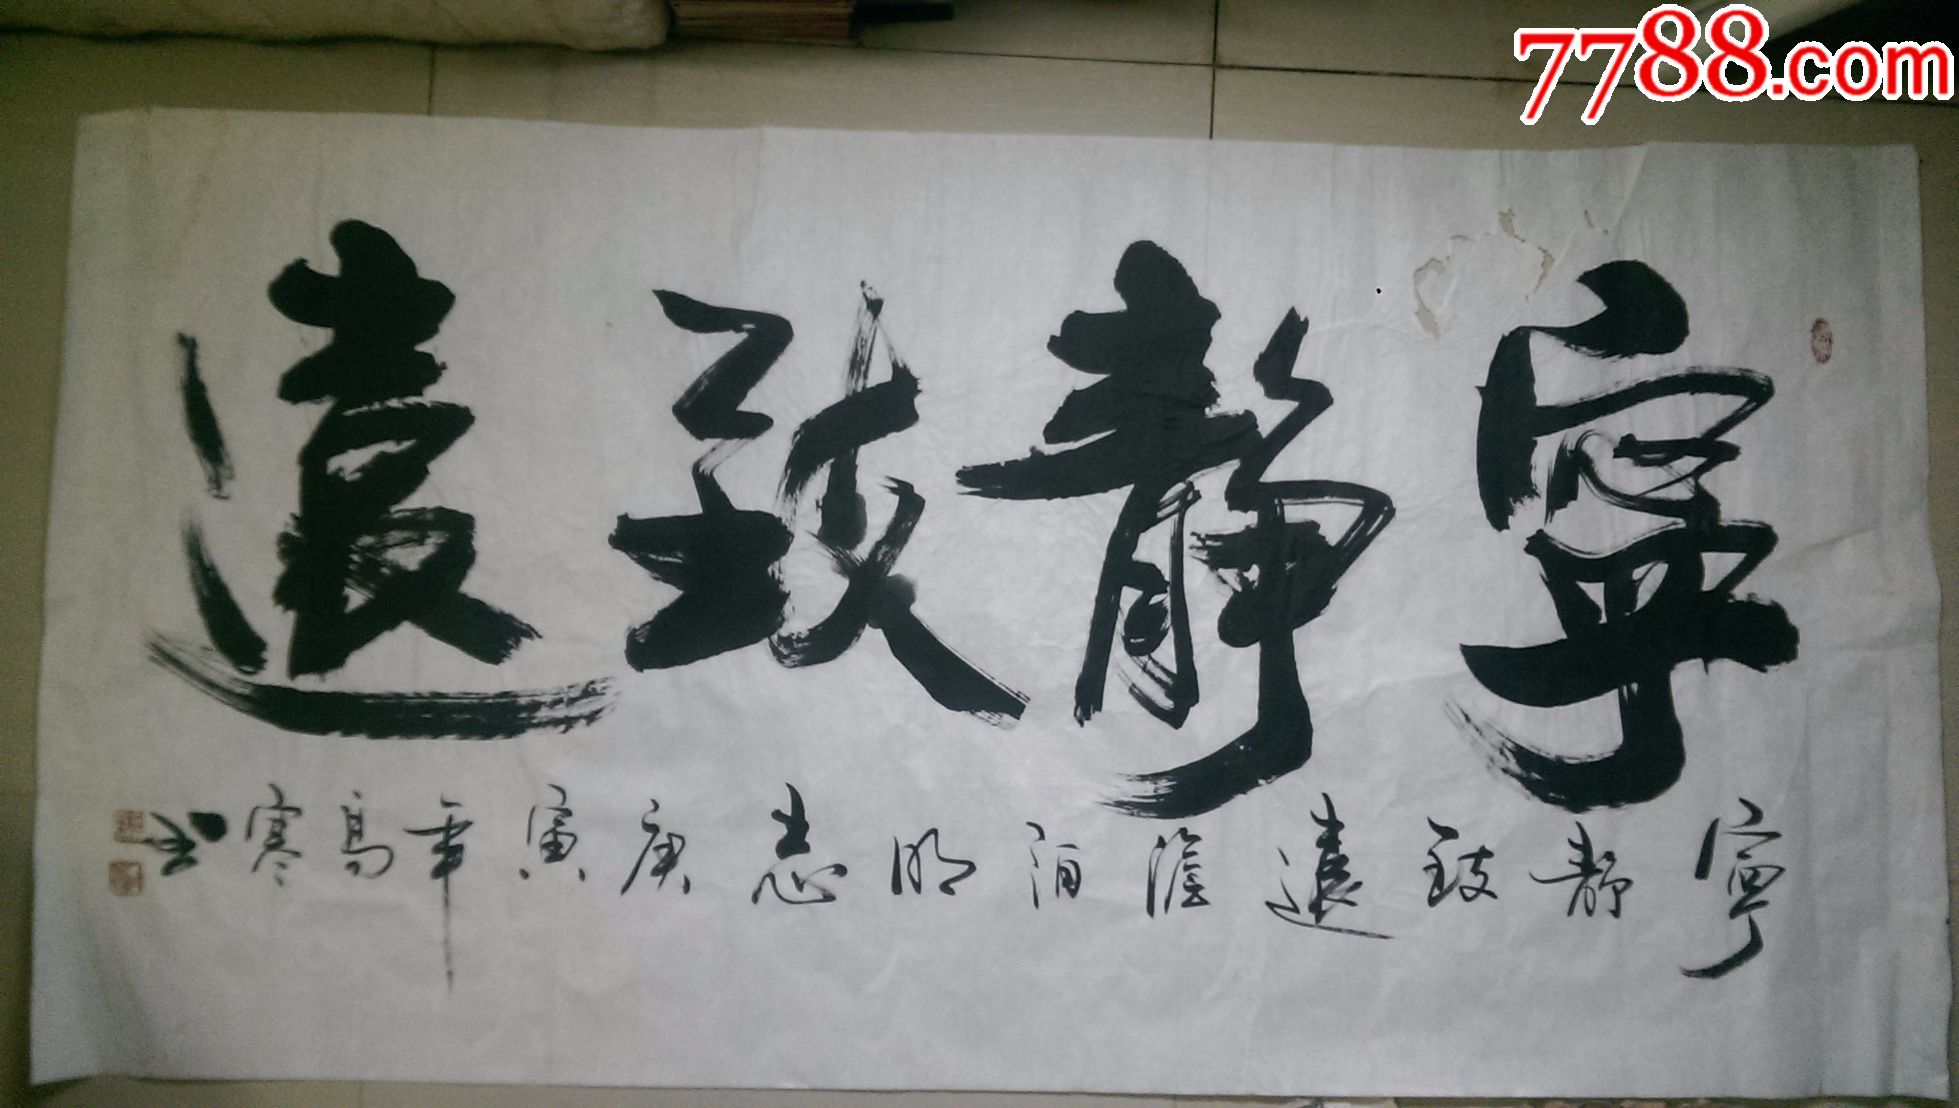 7788.com
寧靜致遠
寧靜致遠澹泊明志庚寅年高寒書